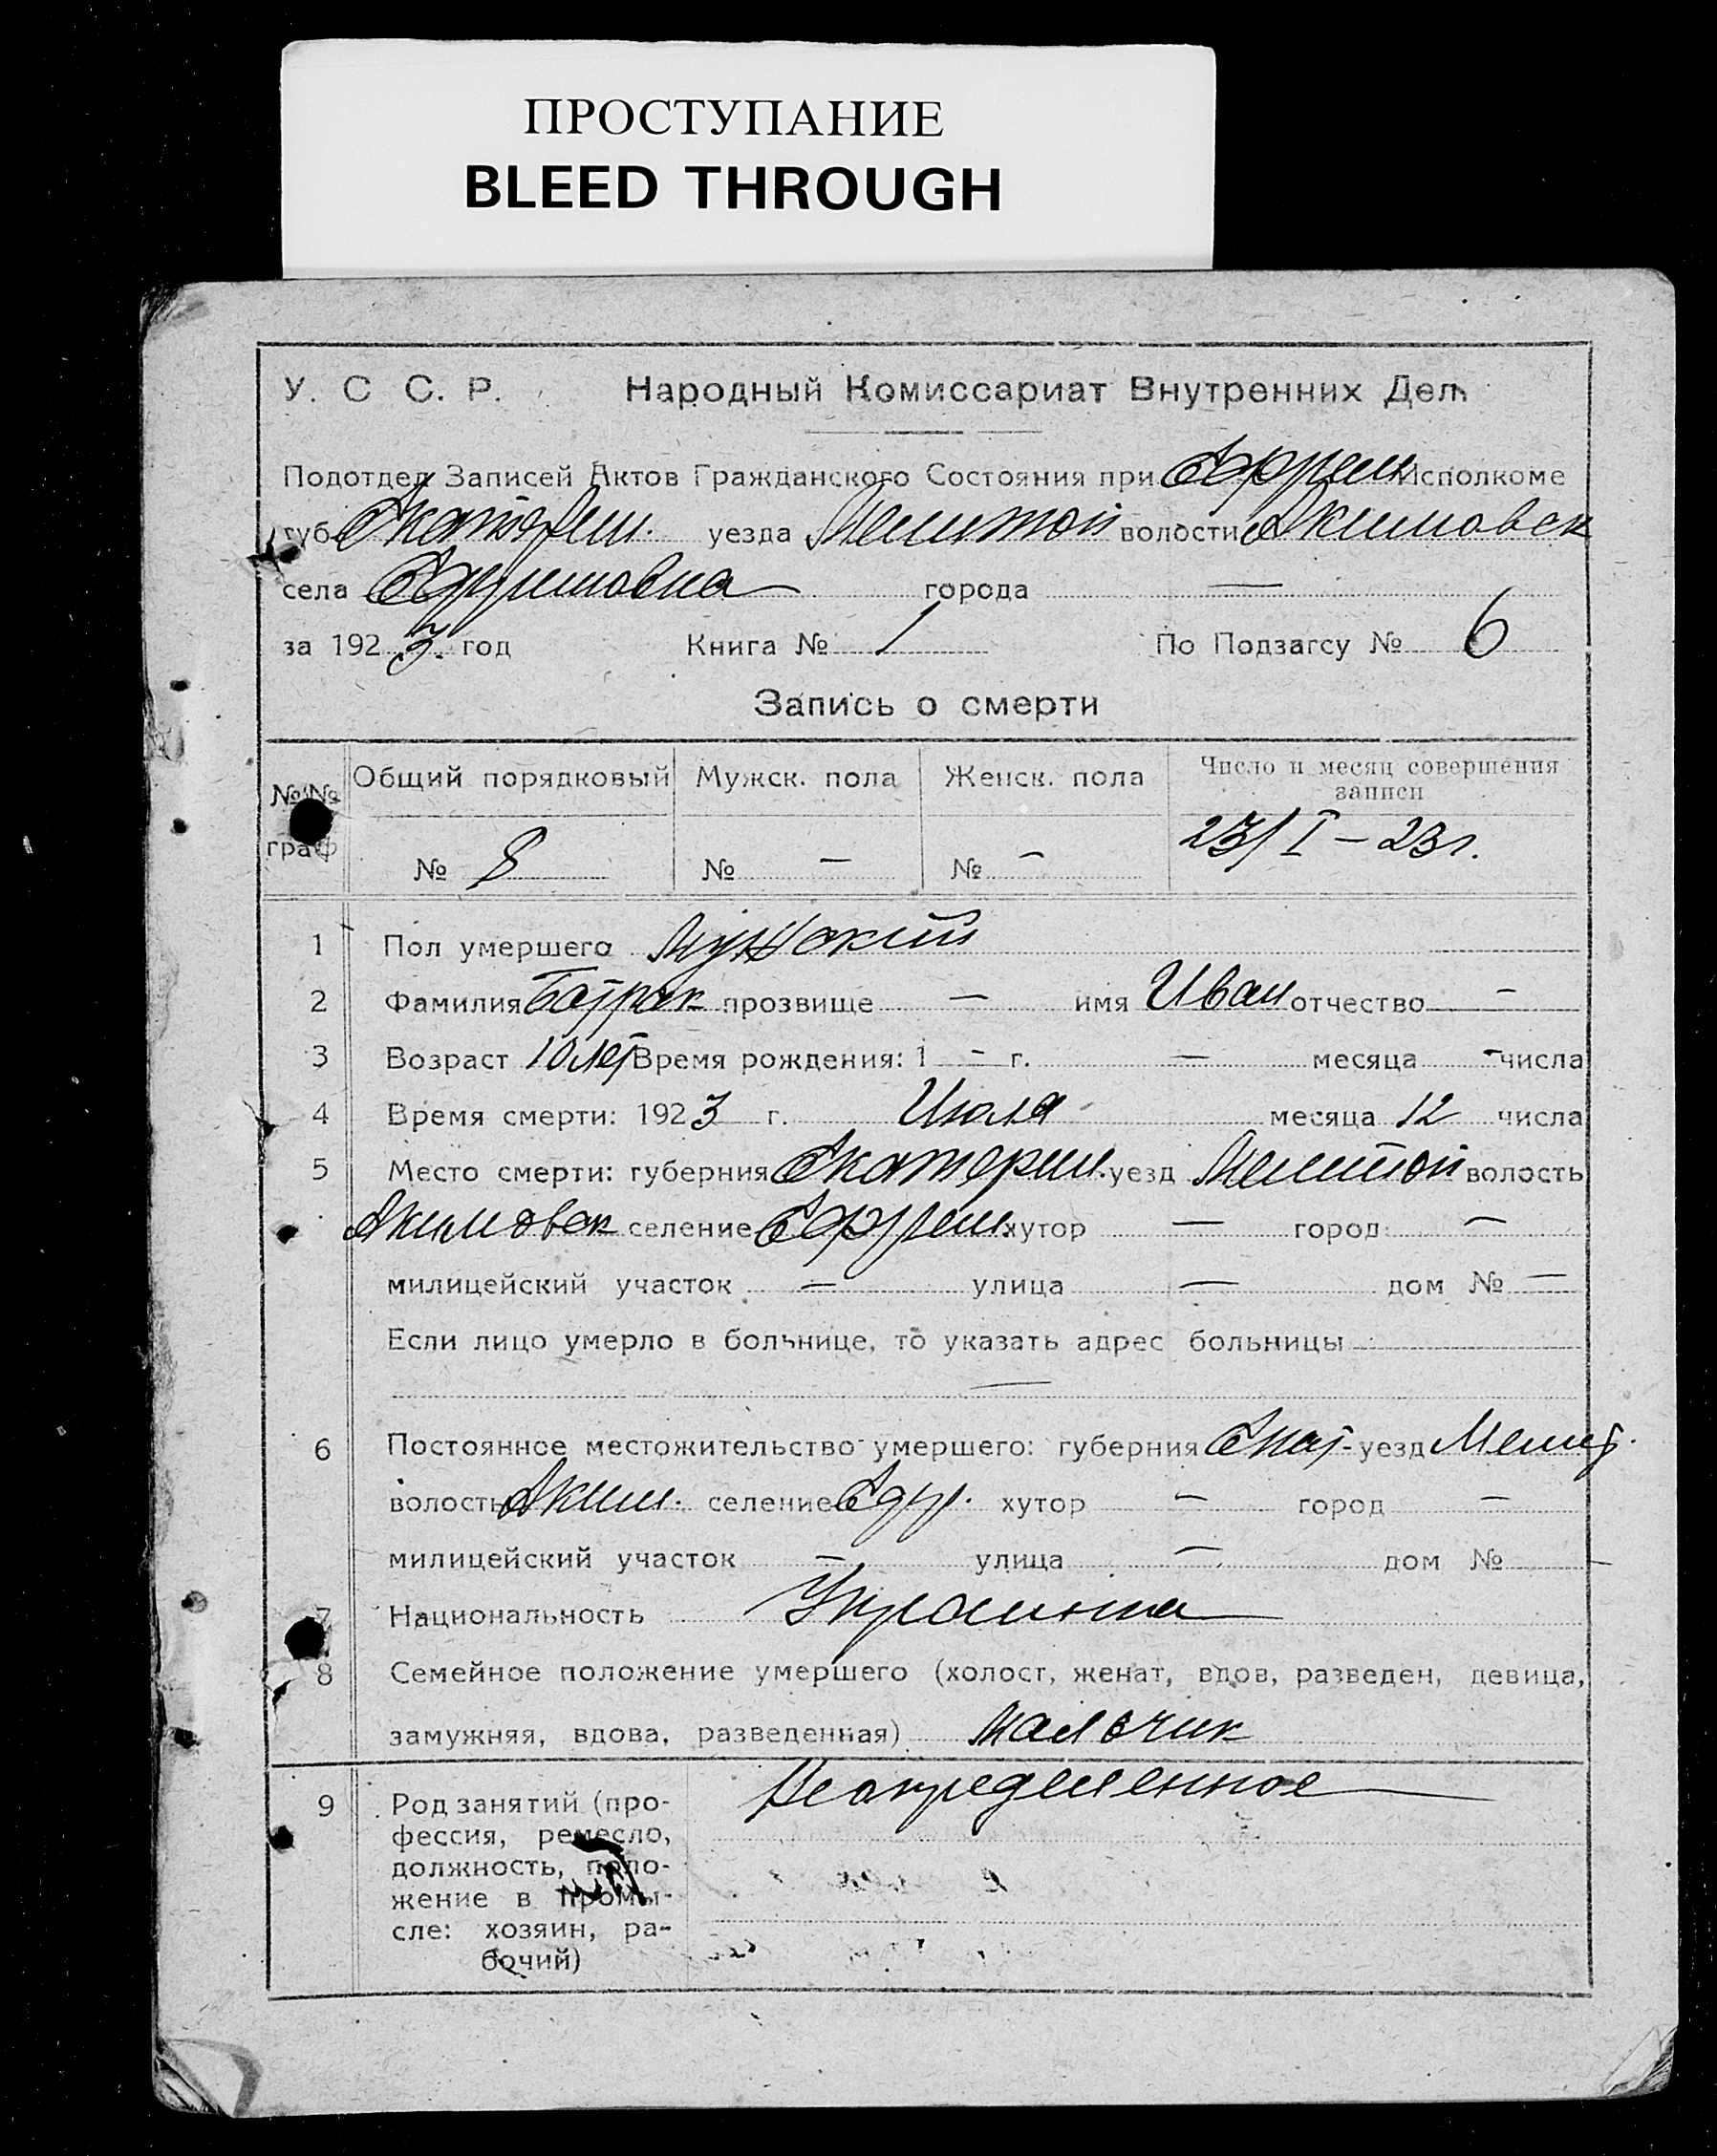 ПРОСТУПАНИЕ
BLEED THROUGH
У. С С. Р. Народный Комиссариат Внутренних Дел
Подотдел Записей Актов Гражданского Состояния при Ефрем Исполкоме
губ. Екатерин. уезда Мелитой волости Акимовск
села Ефремовка города —
за 1923. год Книга № 1 По Подзагсу № 6
Запись о смерти
№№ граф Общий порядковый Мужск. пола Женск. пола Число и месяц совершения записи
№ 8 № — № — 23/I – 23г.
1 Пол умершего Мужской
2 Фамилия прозвище — имя Иван отчество —
3 Возраст 10 лет Время рождения: 1 – г. — месяца – числа
4 Время смерти: 1923 г. Июля месяца 12 числа
5 Место смерти: губерния Екатерин. уезд Мелитой волость
Акимовск селение Ефрем. хутор — город —
милицейский участок — улица — дом № —
Если лицо умерло в больнице, то указать адрес больницы
—
6 Постоянное местожительство умершего: губерния Екат- уезд Мелит.
волость Аким. селение Ефр. хутор — город —
милицейский участок — улица — дом № —
7 Национальность
8 Семейное положение умершего (холост, женат, вдов, разведен, девица,
замужняя, вдова, разведенная) Мальчик
9 Род занятий (про- Неопределенное
фессия, ремесло,
должность, поло-
жение в промы-
сле: хозяин, ра-
бочий)